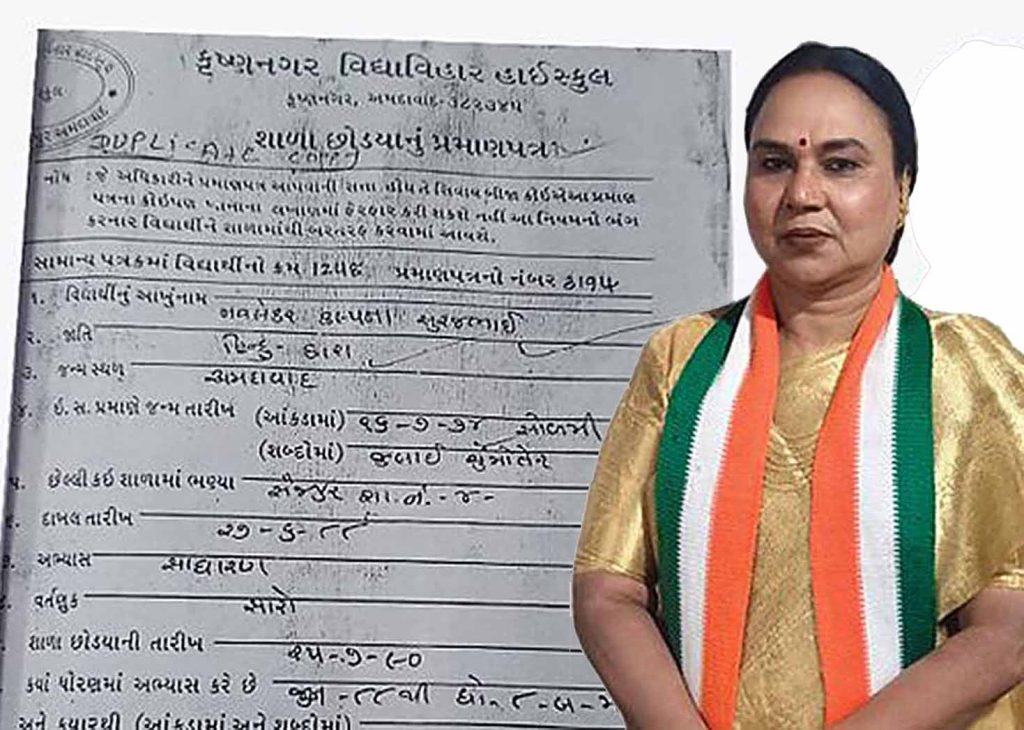 કૃષ્ણનગર વિદ્યાવિહાર હાઈસ્કુલ
કૃષ્ણનગર, અમદાવાદ-૩૮૨૩૪૫
DUPLICATE COPY
શાળા છોડયાનું પ્રમાણપત્ર
નોંધ : જે અધિકારીને પ્રમાણપત્ર આપવાની સત્તા હોય તે સિવાય બીજા કોઈએ આ પ્રમાણ
પત્રના કોઈપણ ખાનાના લખાણમાં ફેરફાર કરી શકશે નહીં આ નિયમનો ભંગ
કરનાર વિદ્યાર્થીને શાળામાંથી બરતરફ કરવામાં આવશે.
સામાન્ય પત્રકમાં વિદ્યાર્થીનો ક્રમ પ્રમાણપત્રનો નંબર
૧. વિદ્યાર્થીનું આખુંનામ સુરજભાઈ
૨. જાતિ હિન્દુ-
૩. જન્મ સ્થળ અમદાવાદ
૪. ઇ. સ. પ્રમાણે જન્મ તારીખ (આંકડામાં) ૧૬-૭-૭૪ સોળમી
(શબ્દોમાં) જુલાઈ
૫. છેલ્લી કઇ શાળામાં ભણ્યા સૈજપુર શા. નં. -૪-
દાખલ તારીખ ૨૭-૬-૮૮
અભ્યાસ સાધારણ
વર્તણુક સારી
શાળા છોડયાની તારીખ ૨૫-૭-૯૦
કયાં ધોરણમાં અભ્યાસ કરે છે જુન-૮૮થી
અને કયારથી (આંકડામાં અને શબ્દોમાં)